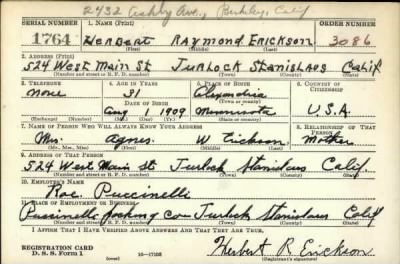 2432 Ashby Ave., Berkley, Calif
SERIAL NUMBER 1. NAME (Print) ORDER NUMBER
1764 Herbert Raymond Erickson 3086
(First) (Middle) (Last)
2. ADDRESS (Print)
524 West Main St Turlock Stanislaus Calif
(Number and street or R. F. D. number) (Town) (County) (State)
3. TELEPHONE 4. AGE IN YEARS 5. PLACE OF BIRTH 6. COUNTRY OF CITIZENSHIP
none 31 Alexandria
DATE OF BIRTH (Town or county)
Aug 1 1909 Minnesota U.S.A.
(Exchange) (Number) (Mo.) (Day) (Yr.) (State or country)
7. NAME OF PERSON WHO WILL ALWAYS KNOW YOUR ADDRESS 8. RELATIONSHIP OF THAT PERSON
Mrs. Agnes W Erickson Mother
(Mr., Mrs., Miss) (First) (Middle) (Last)
9. ADDRESS OF THAT PERSON
524 West Main St Turlock Stanislaus Calif.
(Number and street or R. F. D. number) (Town) (County) (State)
10. EMPLOYER'S NAME
Puccinelli
11. PLACE OF EMPLOYMENT OR BUSINESS
Puccinelli Packing Co Turlock Stanislaus Calif
(Number and street or R. F. D. number) (Town) (County) (State)
I AFFIRM THAT I HAVE VERIFIED ABOVE ANSWERS AND THAT THEY ARE TRUE.
REGISTRATION CARD
D. S. S. FORM 1 Herbert R Erickson
(Registrant's signature)